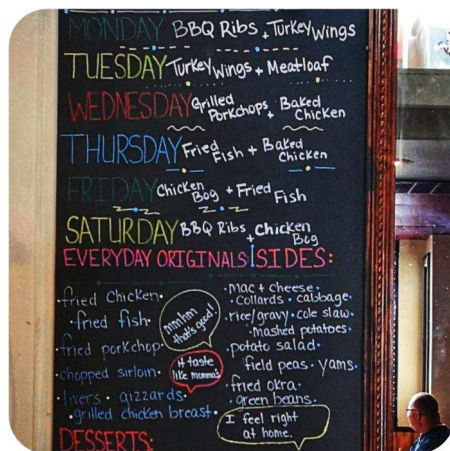 MONDAY BBQ Ribs + Turkey Wings
TUESDAY Turkey Wings + Meatloaf
WEDNESDAY Grilled Porkchops + Baked Chicken
THURSDAY Fried Fish + Baked Chicken
FRIDAY Chicken Bog + Fried Fish
SATURDAY BBQ Ribs + Chicken Bog
EVERYDAY ORIGINALS:
fried chicken•
•fried fish•
•fried porkchop•
chopped sirloin•
livers • gizzards•
•grilled chicken breast•
mmhm that's good!
# taste like momma's
SIDES:
•mac + cheese•
•collards • cabbage•
•rice/gravy•cole slaw•
•mashed potatoes•
•potato salad•
field peas • yams•
•fried okra•
•green beans•
I feel right
at home.
DESSERTS: